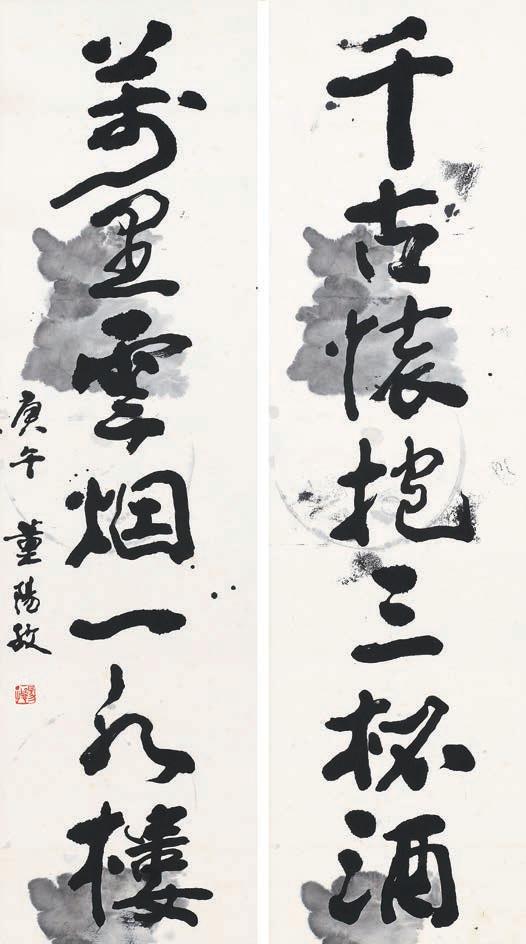 千古懷抱三杯酒
萬里雲烟一水樓
庚午 董陽孜